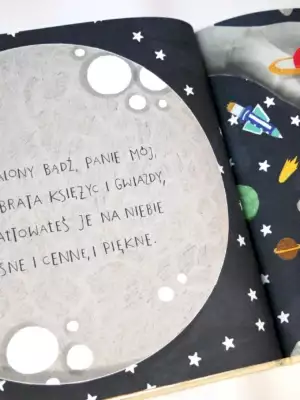 IONY BĄDŹ, PANIE MÓJ,
BRATA KSIĘŻYC I GWIAZDY,
AŁTOWAŁEŚ JE NA NIEBIE
SNE I CENNE, I PIĘKNE.